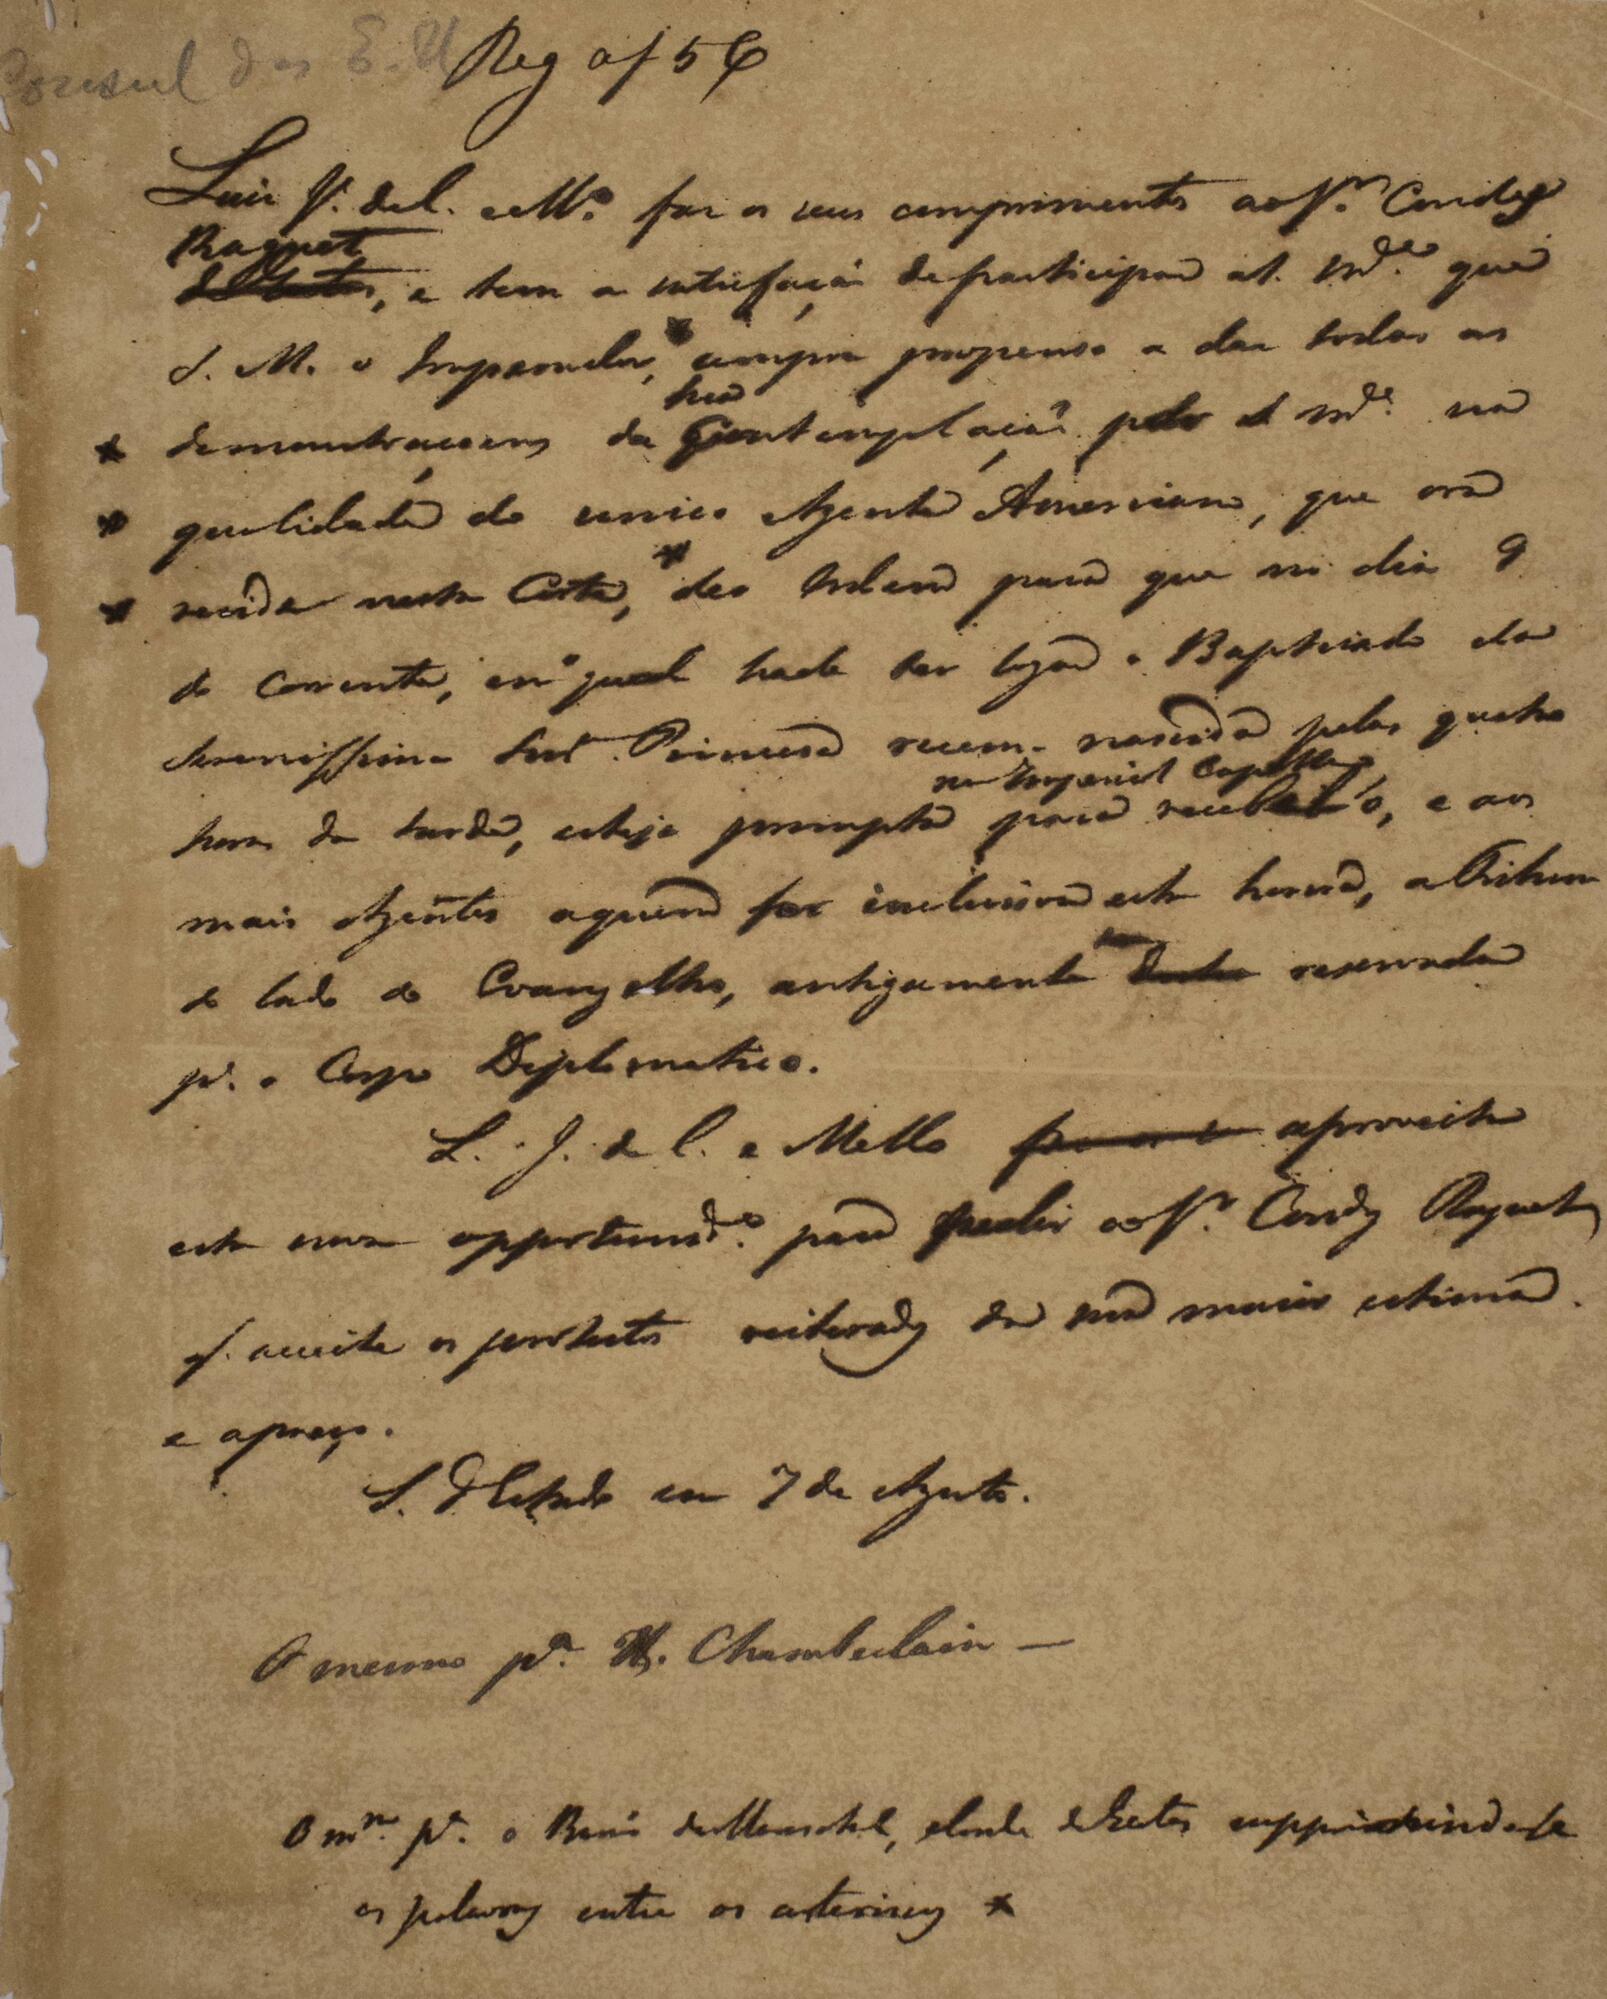 Consul dos E. U.
Reg af 56
Luiz J. de C. e Mo. faz os seus comprimentos ao Sr. Condy
Raguet
de Gestas, e tem a satisfação de participar a S. Mde. que
S. M. o Imperador, * sempre propenso a dar todas as
sua
* demonstraçoens da Contemplação pelo d S Mde. na
* qualidade do unico Agente Americano, que ora
* reside nesta Corte, * deo Ordem para que no dia 9
do corrente, em o qual hade ter logar o Baptisado da
Serenissima Snrª Princesa recem-nascida pelas quatro
na Imperial Capella
horas da tarde, esteja prompta para recebelo, e aos
mais Agentes a quem for inclusiva esta honra, a Tribuna
do lado do Evangelho, antigamente reservada
pª. o Corpo Diplomatico.
L. J. de C. e Mello aproveita
esta nova opportunide. para pedir ao Sr. Condy Raguet
q. acceite os protestos reiterados da sua maior estima
e apreço.
S. d'Estado em 7 de Agosto.
O mesmo pª. H. Chamberlain —
O mmo. pª. o Barão de Mareschal, e Conde de Gestas supprimindose
as palavras entre os asteriscos *